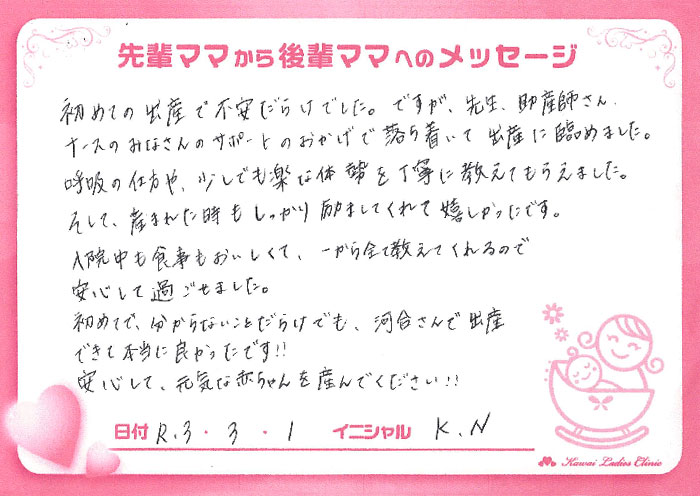 先輩ママから後輩ママへのメッセージ
初めての出産で不安だらけでした。ですが、先生、助産師さん、
ナースのみなさんのサポートのおかげで落ち着いて出産に臨めました。
呼吸の仕方や、少しでも楽な体勢を丁寧に教えてもらえました。
そして、産まれた時もしっかり励ましてくれて嬉しかったです。
入院中も食事もおいしくて、一から全て教えてくれるので
安心して過ごせました。
初めてで、分からないことだらけでも、河合さんで出産
できて本当に良かったです!!
安心して、元気な赤ちゃんを産んでください!!
日付 R.3・3・1 イニシャル K.N
Kawai Ladies Clinic